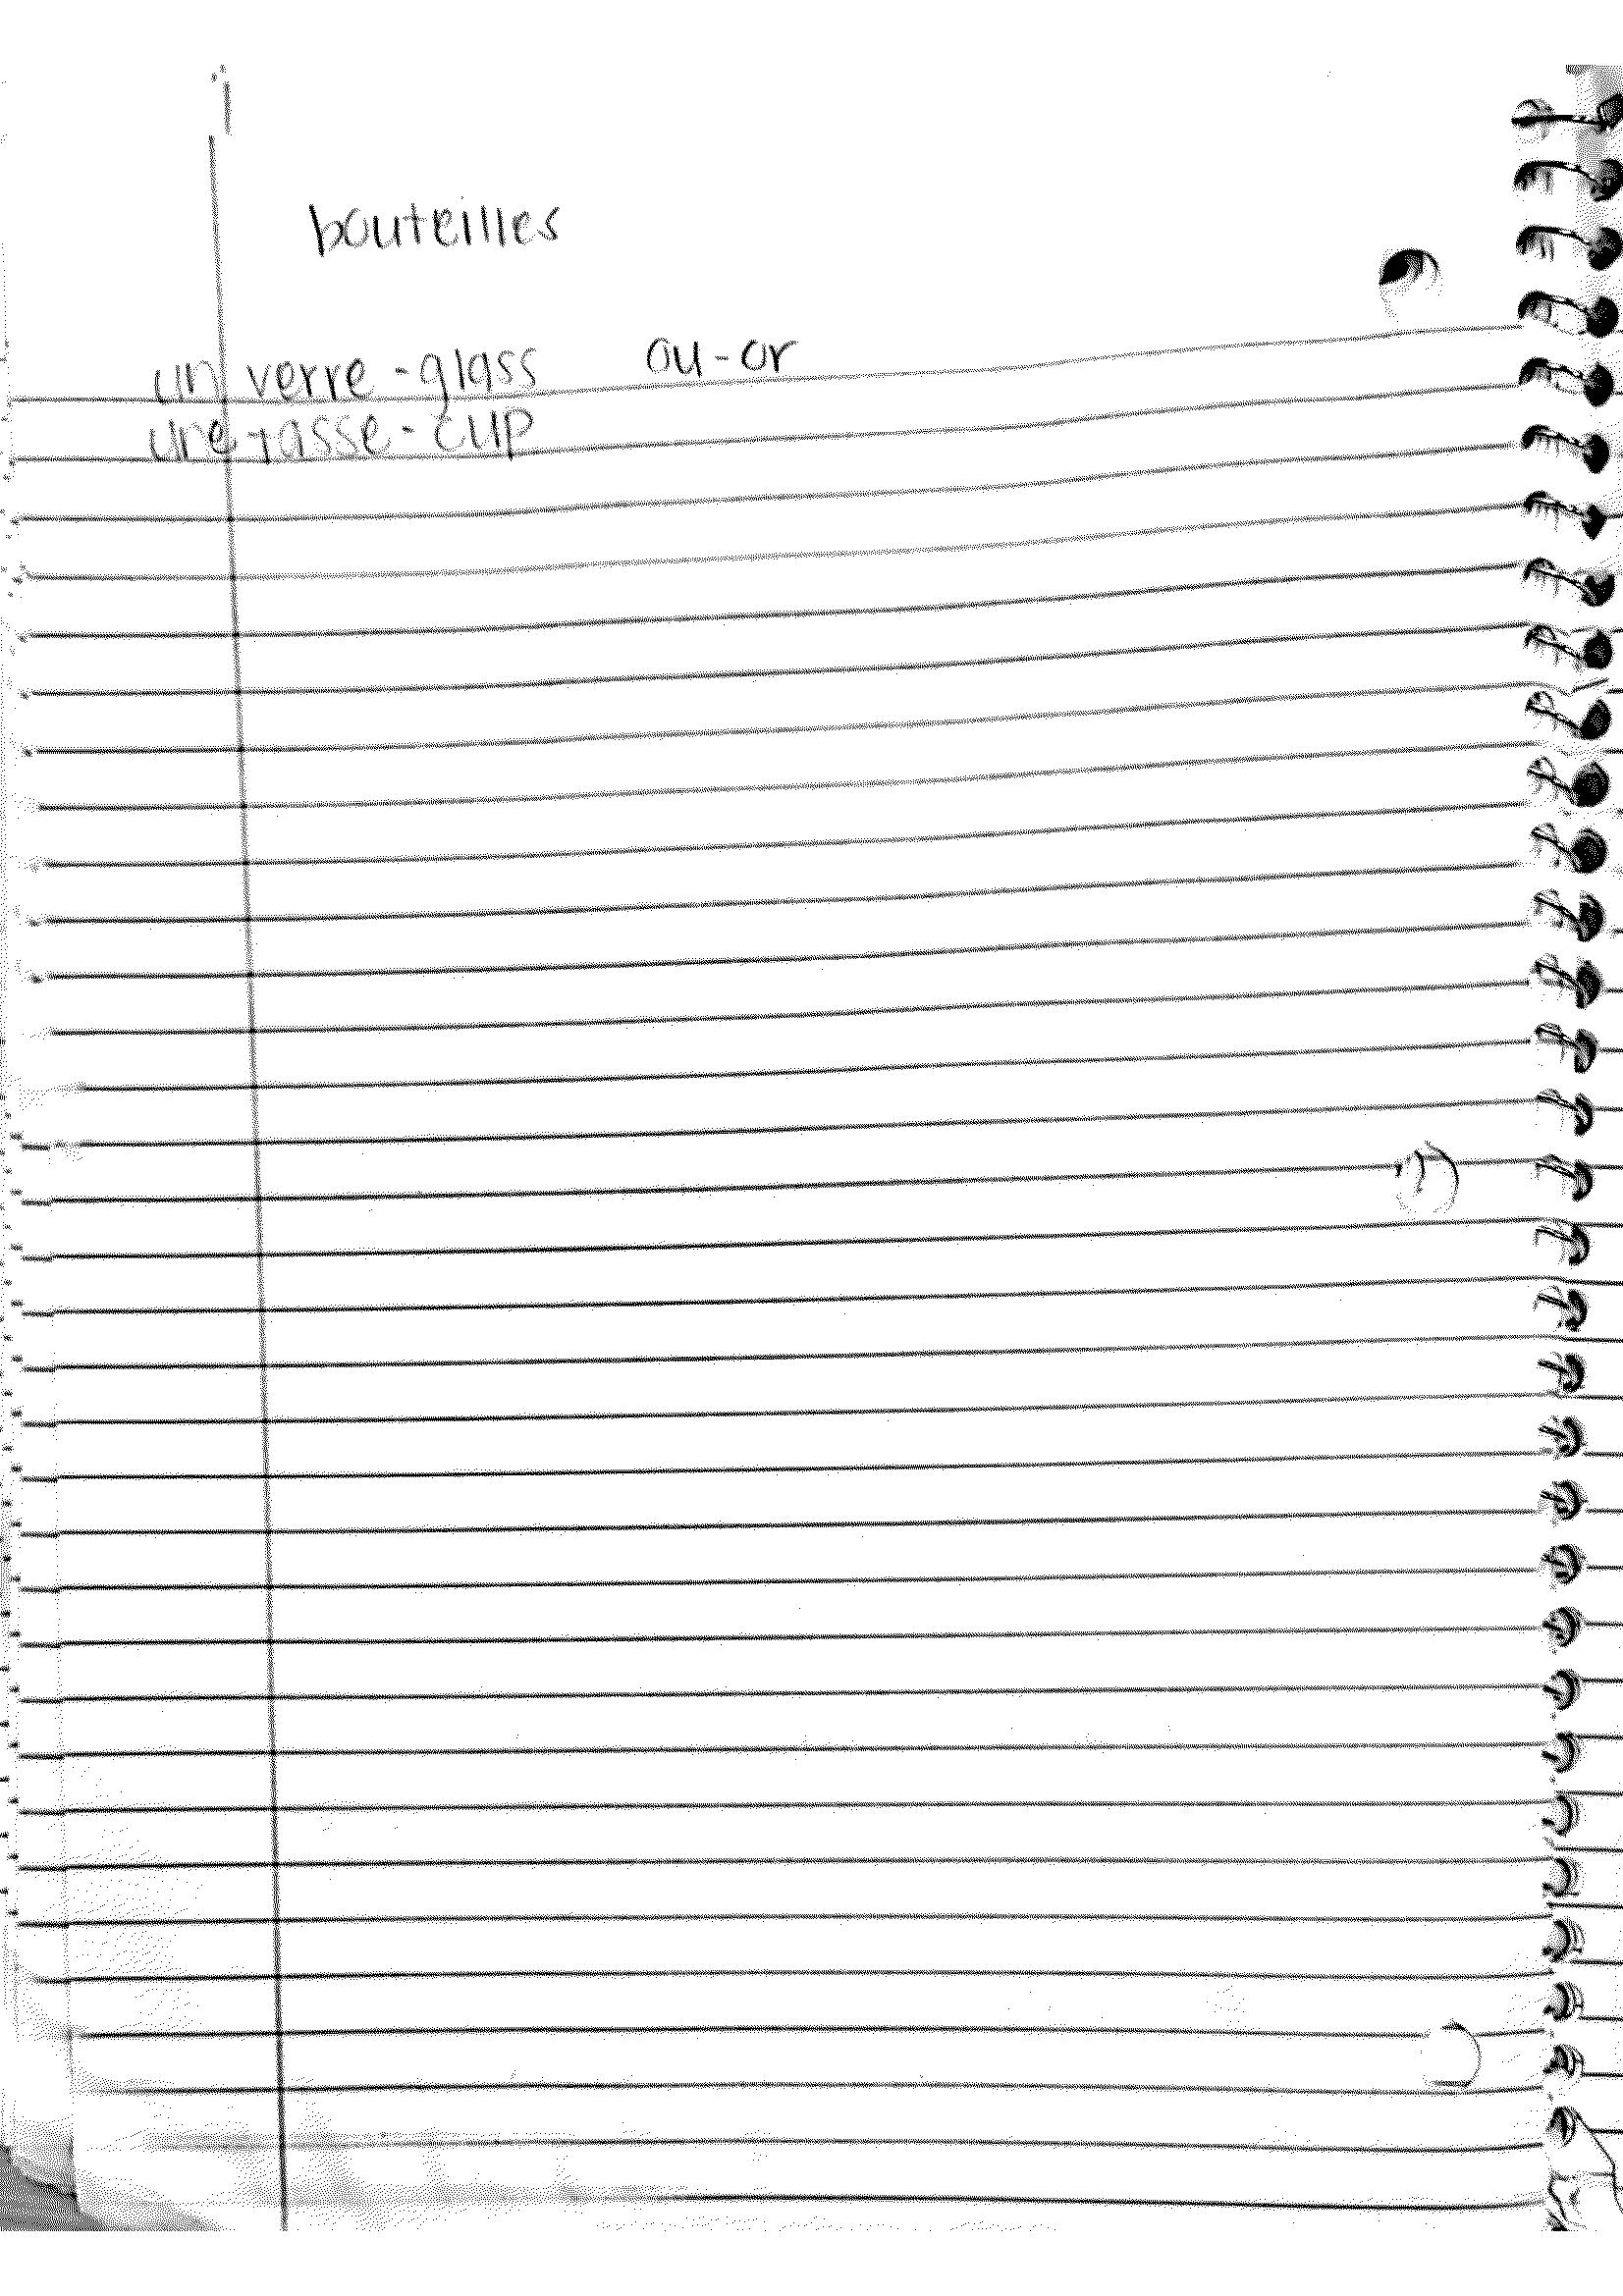 bouteilles
un verre - glass ou - or
une tasse - cup